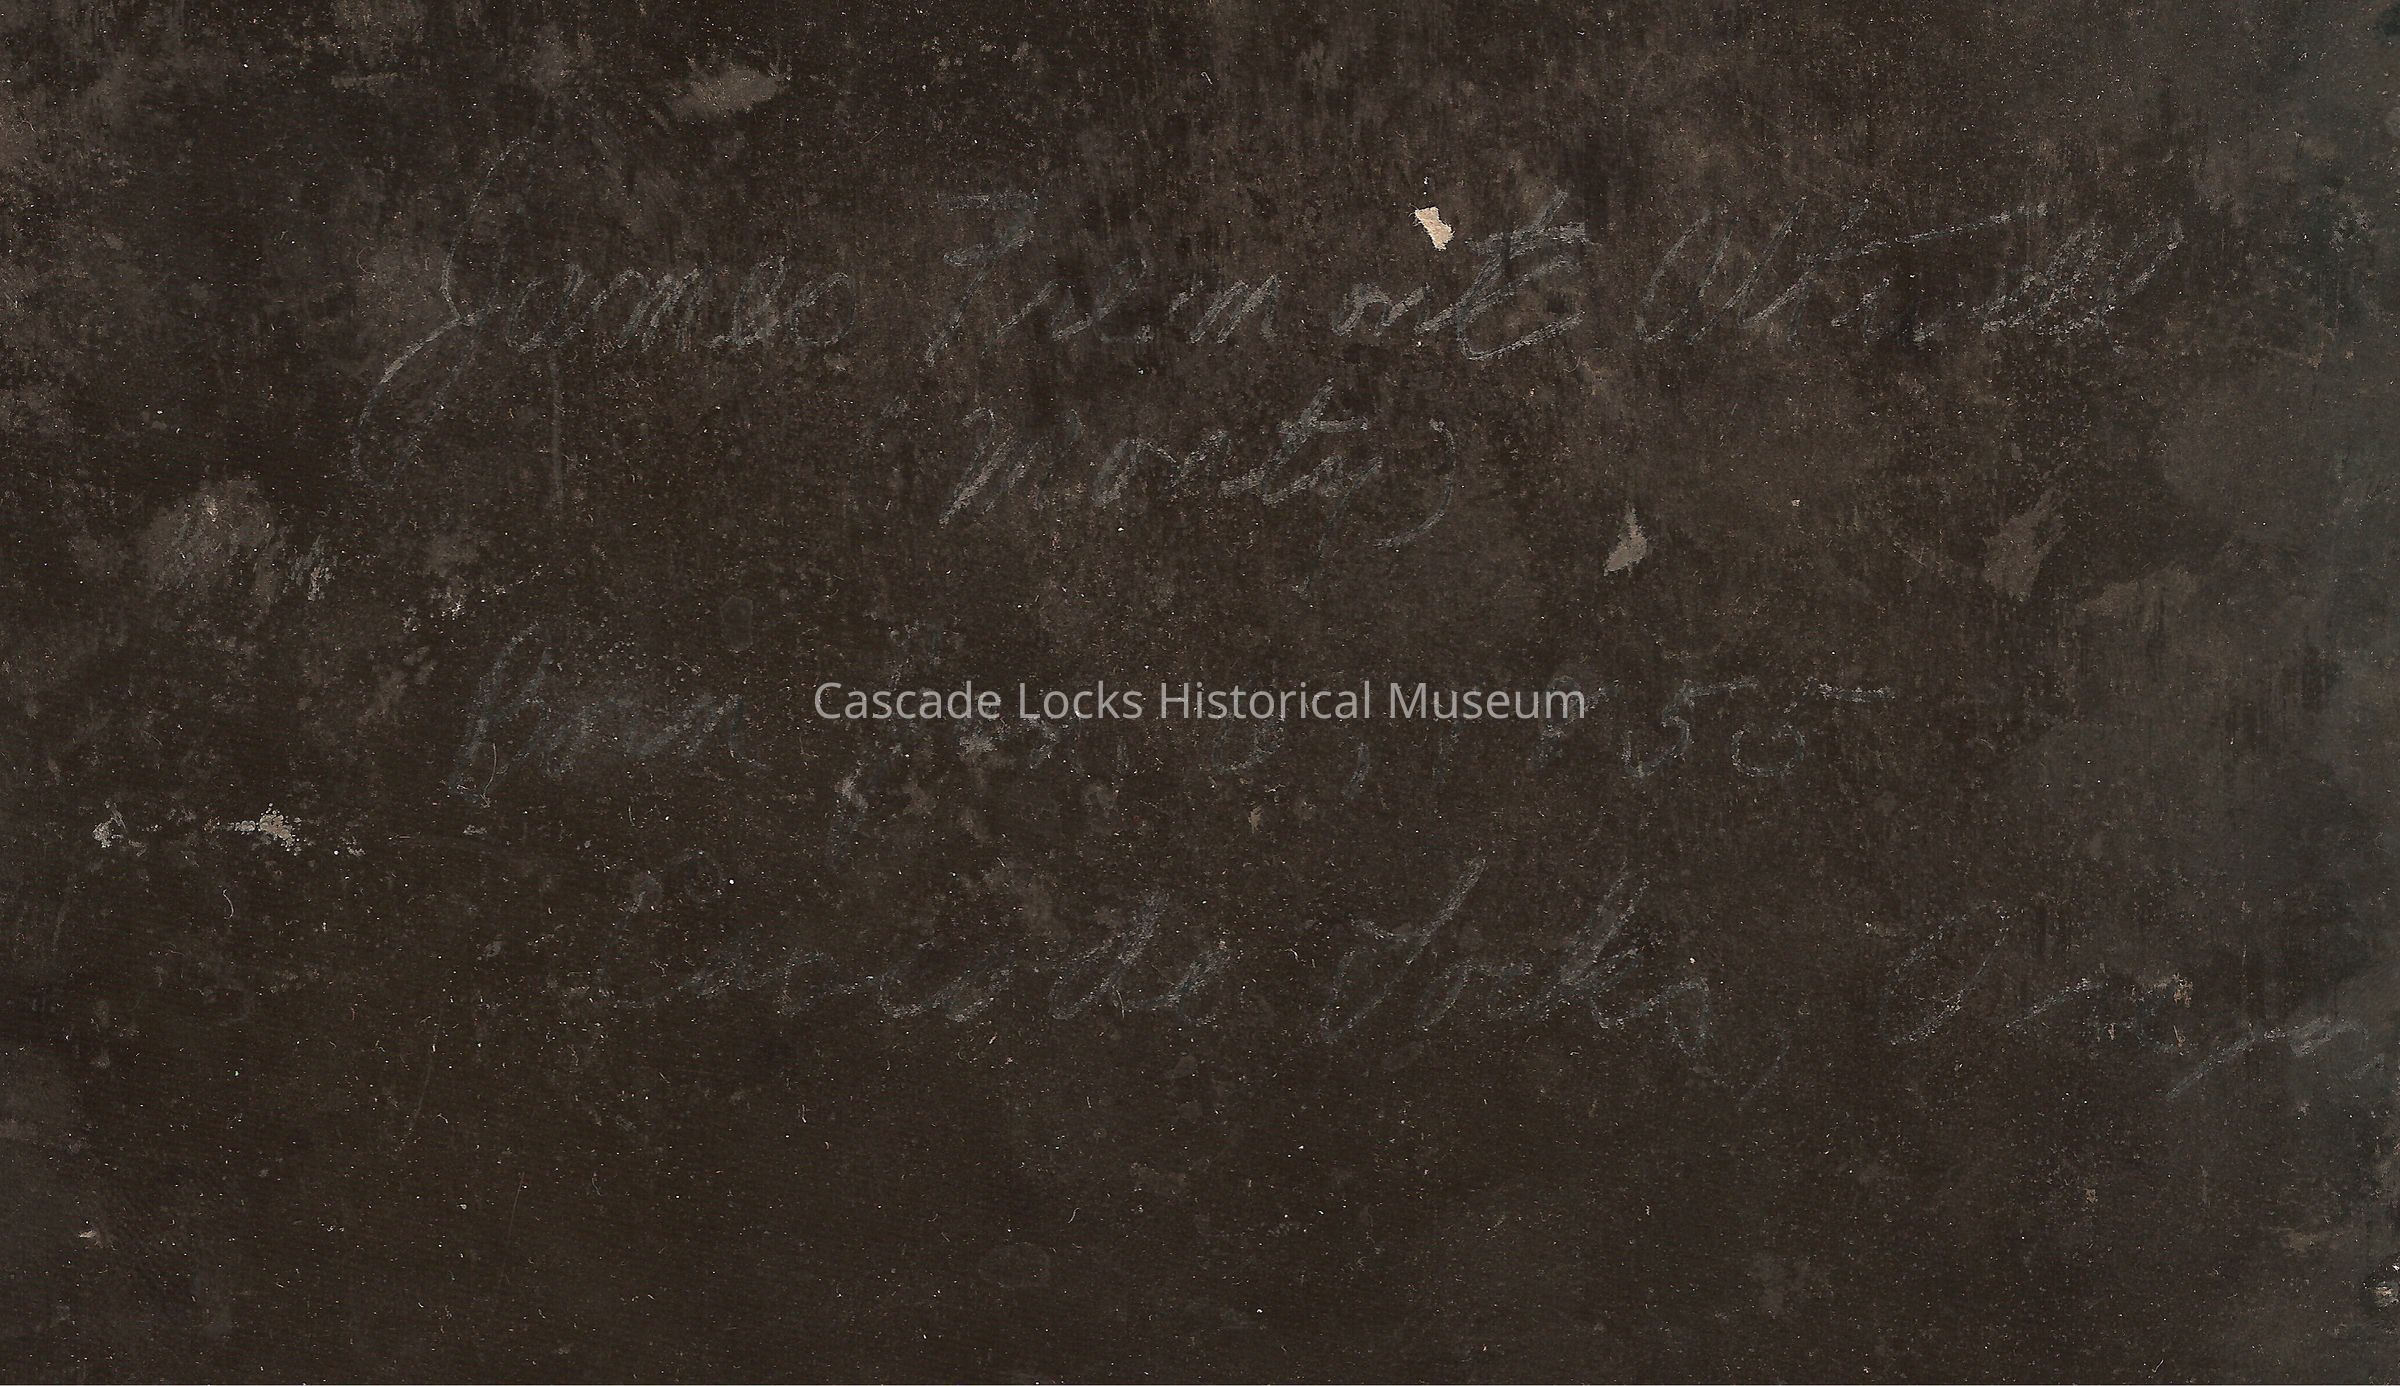 James Fremont Attwell
Monty)
born
Cascade Locks Historical Museum
Cascade Locks, Oregon